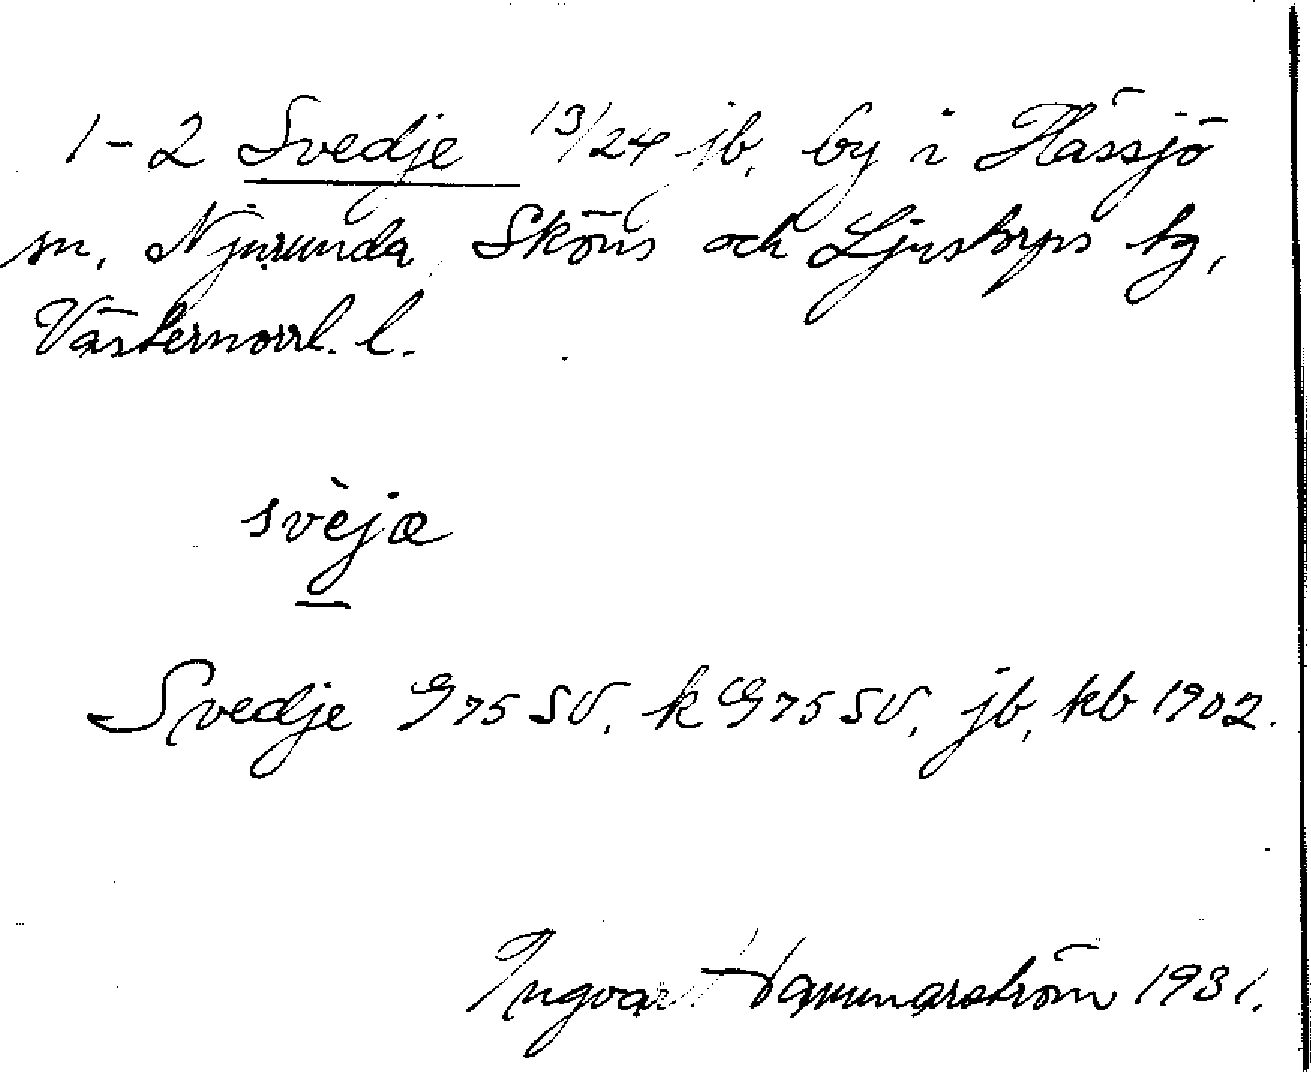 1-2 Svedje 13/24 jb, by i Hässjö
sn, Njurunda, Sköns och Ljustorps tg,
Västernorrl. l.
svèjæ
Svedje G75SV, k G75SV, jb, kb 1902.
Ingvar Hammarström 1931.